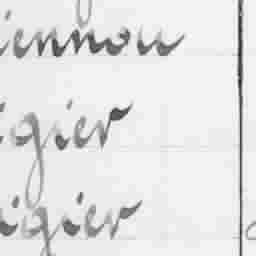 iennou
igier
igier